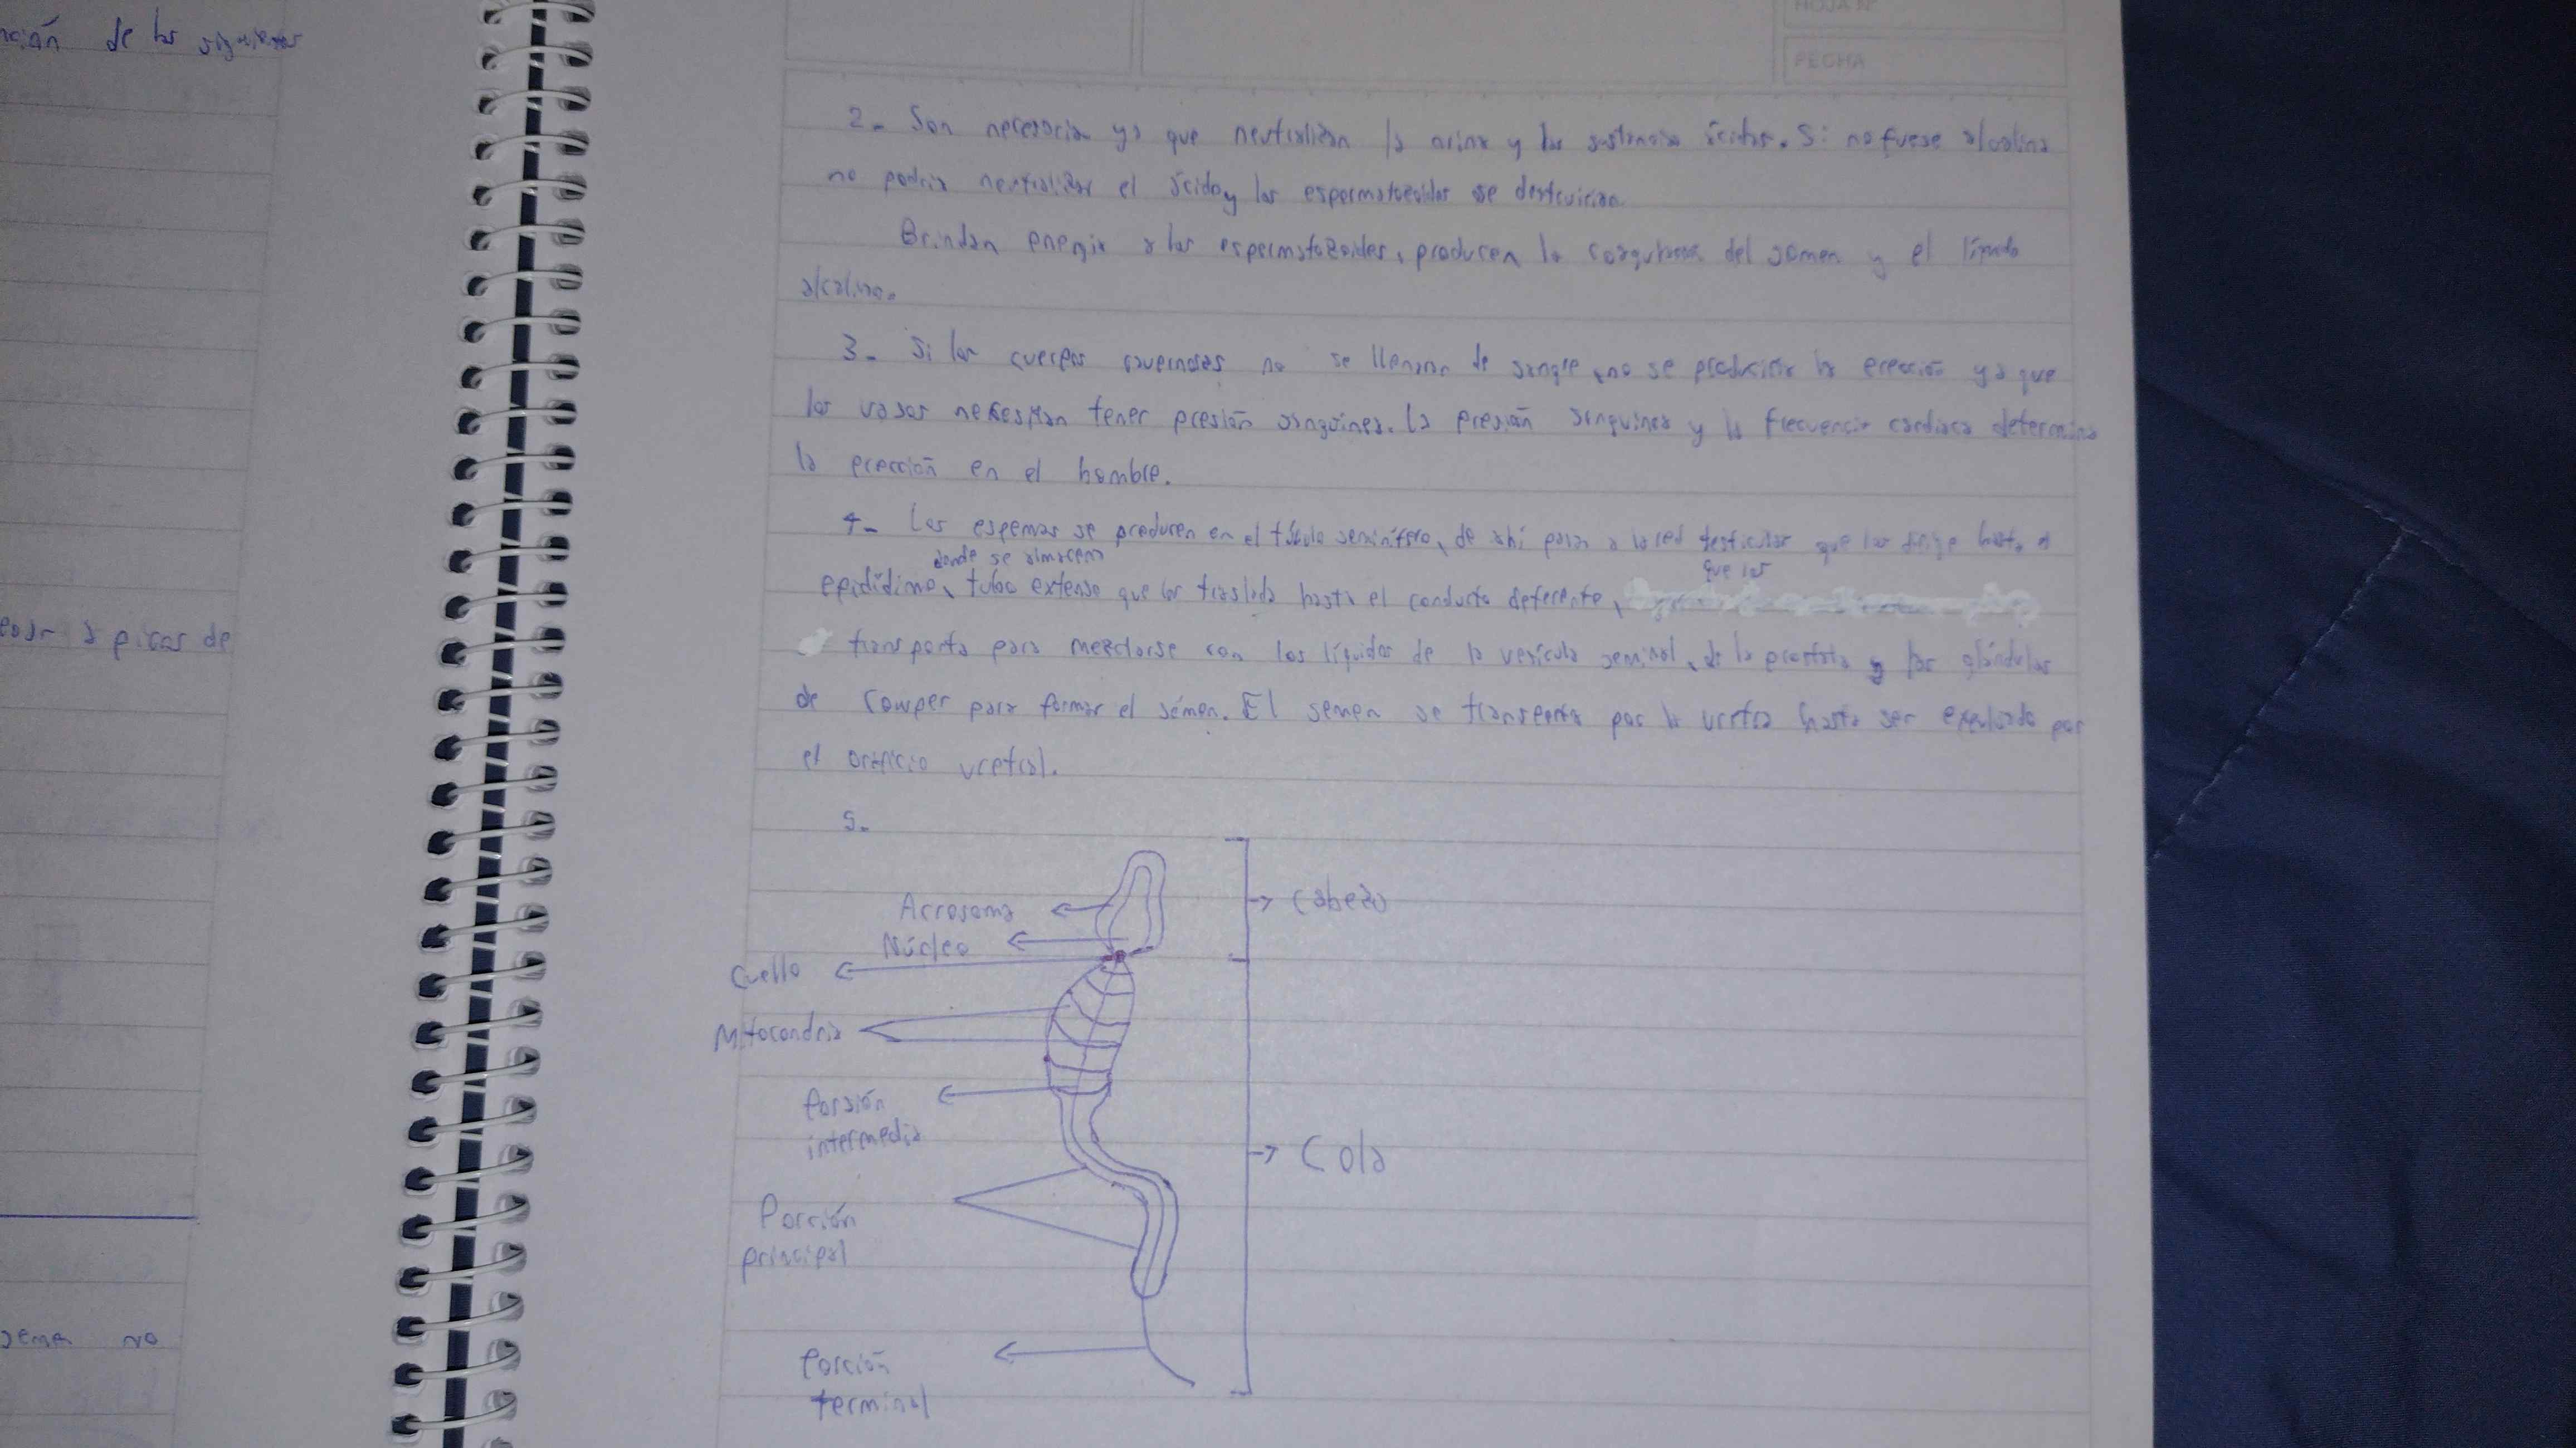 nción de los siguientes
a picos de
semen no
HOJA N°
FECHA
2- Son necesarias ya que neutralizan la orina y las sustancias ácidas. Si no fuese alcalina
no podria neutralizar el ácido y los espermatozoides se destruirian.
Brindan energia a los espermatozoides, producen la del semen y el líquido
alcalino.
3- Si los cuerpos cavernosos no se llenaran de sangre, no se produciria la erección ya que
los vasos necesitan tener presión sanguinea. La presión sanguinea y la frecuencia cardiaca determina
la erección en el hombre.
4- Los espemas se producen en el túbulo seminífero, de ahí pasan a la red testicular que los dirige hasta el
donde se almacena
epidídimo, tubo extenso que los traslada hasta el conducto deferente, que los
transporta para mezclarse con los líquidos de la vesícula seminal, de la prostata y las glándulas
de Cowper para formar el sémen. El semen se transporta por la uretra hasta ser expulsado por
el orificio uretral.
5-
Acrosoma
Núcleo
Cabeza
Cuello
Mitocondria
Porsión
intermedia
Cola
Porción
principal
Porción
terminal